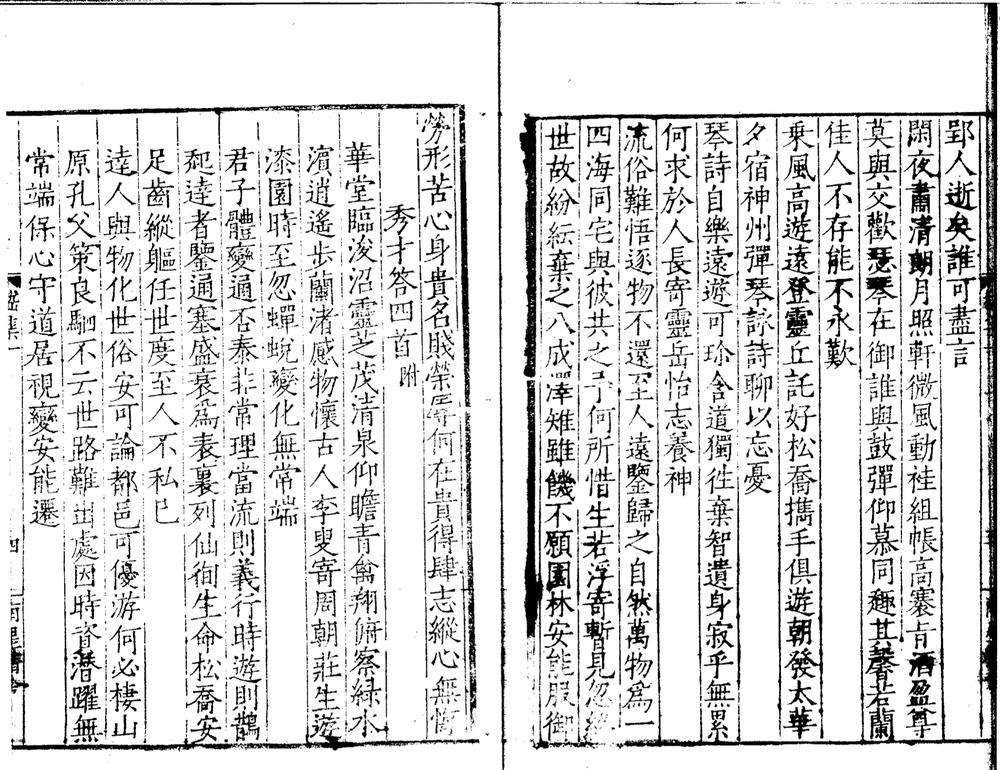 郢人逝矣誰可盡言
閑夜肅清朗月照軒微風動袿組帳高褰旨酒盈尊
莫與交歡瑟琴在御誰與鼓彈仰慕同趣其馨若蘭
佳人不存能不永歎
乘風高遊遠登靈丘託好松喬攜手俱遊朝發太華
夕宿神州彈琴詠詩聊以忘憂
琴詩自樂遠遊可珍含道獨往棄智遺身寂乎無累
何求於人長寄靈岳怡志養神
流俗難悟逐物不還至人遠鑒歸之自然萬物為一
四海同宅與彼共之予何所惜生若浮寄暫見忽終
世故紛紜棄之八成澤雉雖饑不願園林安能服御
勞形苦心身貴名賤榮辱何在貴得肆志縱心無
秀才答四首附
華堂臨浚沼靈芝茂清泉仰瞻青禽翔俯察綠水
濱逍遙步蘭渚感物懷古人李叟寄周朝莊生遊
漆園時至忽蟬蛻變化無常端
君子體變通否泰非常理當流則義行時遊則鵲
起達者鑒通塞盛衰為表裏列仙徇生命松喬安
足齒縱軀任世度至人不私已
達人與物化世俗安可論都邑可優游何必棲山
原孔父策良駟不云世路難出處因時資潛躍無
常端保心守道居視變安能遷
嵇集一
四